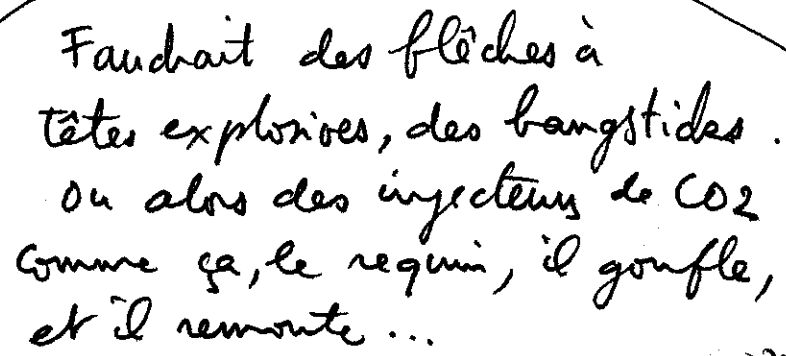 Faudrait des flêches à
têtes explosives, des bangsticks.
ou alors des injecteurs de CO2
comme ça, le requin, il gonfle,
et il remonte...